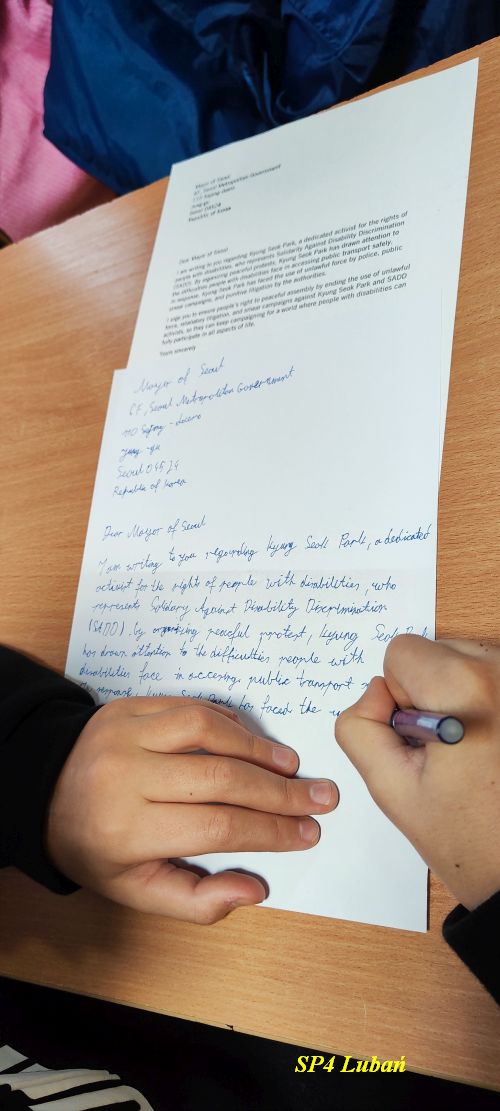 Mayor of Seoul
6F, Seoul Metropolitan Government
110 Sejong-daero
Jung-gu
Seoul 04524
Republic of Korea
Dear Mayor of Seoul
I am writing to you regarding Kyung Seok Park, a dedicated activist for the rights of
people with disabilities, who represents Solidarity Against Disability Discrimination
(SADD). By organising peaceful protests, Kyung Seok Park has drawn attention to
the difficulties people with disabilities face in accessing public transport safely.
In response, Kyung Seok Park has faced the use of unlawful force by police, public
smear campaigns, and punitive litigation by the authorities.
I urge you to ensure people's right to peaceful assembly by ending the use of unlawful
force, retaliatory litigation, and smear campaigns against Kyung Seok Park and SADD
activists, so they can keep campaigning for a world where people with disabilities can
fully participate in all aspects of life.
Yours sincerely
Mayor of Seoul
6F, Seoul Metropolitan Government
110 Sejong-daero
Jung-gu
Seoul 04524
Republic of Korea
Dear Mayor of Seoul
I am writing to you regarding Kyung Seok Park, a dedicated
activist for the right of people with disabilities, who
represents Solidary Against Disability Discrimination
(SADD). by organizing peaceful protest, Kyung Seok Park
has drawn attention to the difficulties people with
disabilities face in accesing public transport
response, Kyung Seok Park has faced the
SP4 Lubań